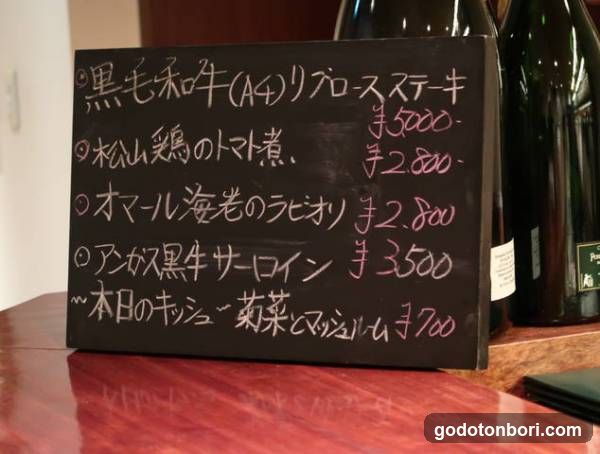 黒毛和牛(A4)リブロースステーキ
¥5000-
松山鶏のトマト煮、 ¥2.800-
オマール海老のラビオリ ¥2.800
アンガス黒牛サーロイン ¥3500
~本日のキッシュ~ 菊菜とマッシュルーム ¥700
godotonbori.com